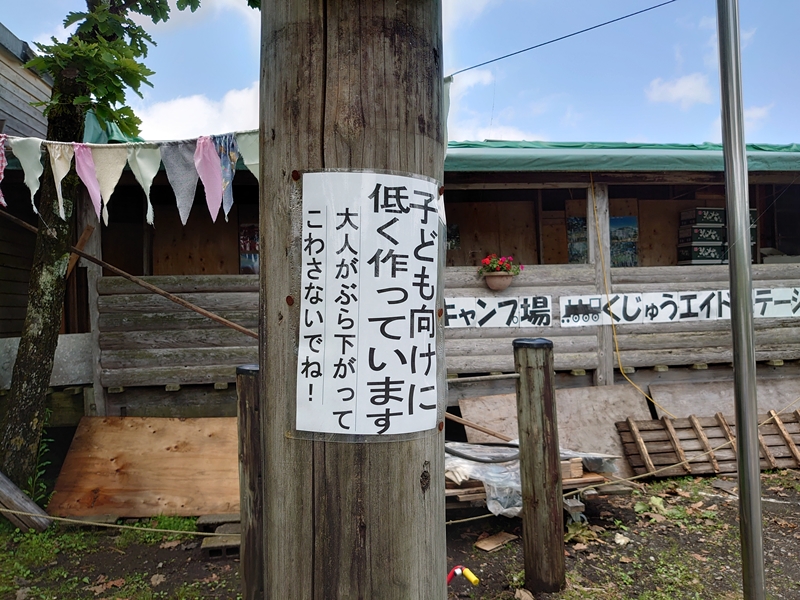 子ども向けに
低く作っています
大人がぶら下がって
こわさないでね！
キャンプ場
くじゅうエイドステーシ